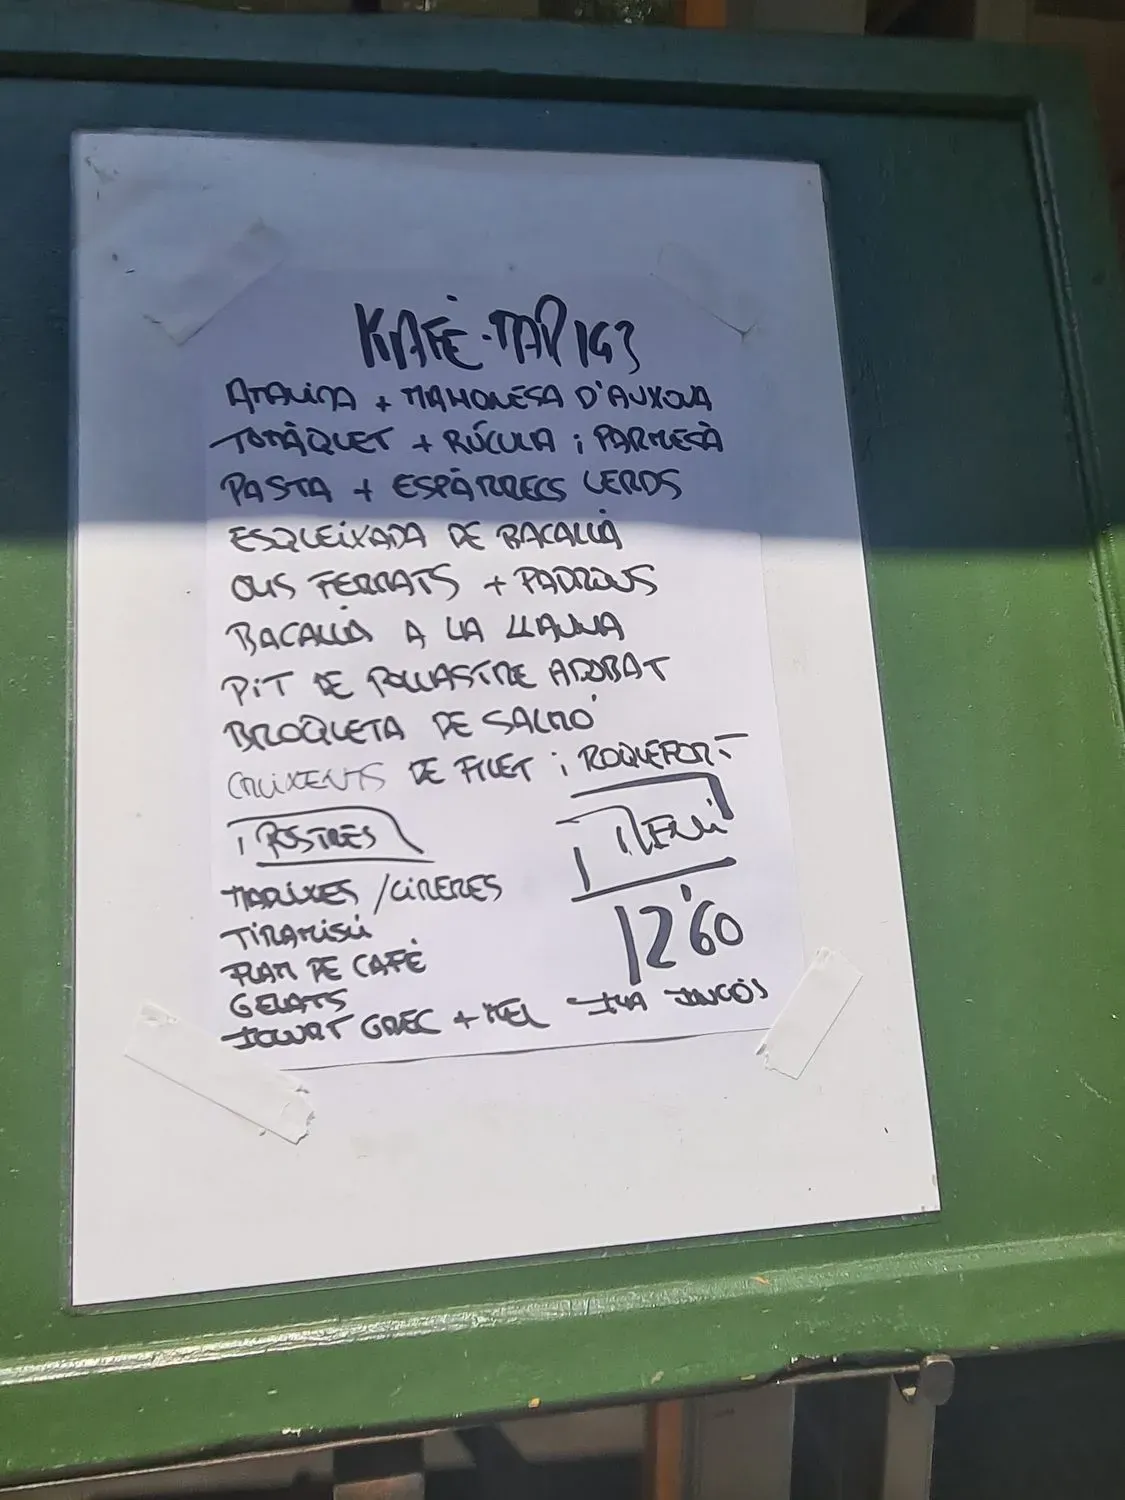 KAFÈ-TAP 163
AMANIDA + MAHONESA D'ANXOVA
TOMÀQUET + RÚCULA i PARMESÀ
PASTA + ESPÀRRECS VERDS
ESQUEiXADA DE BACALLÀ
OUS FERRATS + PADRONS
BACALLÀ A LA LLAUNA
PiT DE POLLASTRE ADOBAT
BROQUETA DE SALMÓ
CRUIXENTS DE FILET i ROQUEFORT
POSTRES
MADUIXES / CiRERES
TiRAMiSÚ
FLAM DE CAFÈ
GELATS
IOGURT GREC + MEL
MENÚ
12'60
IVA INCÒS